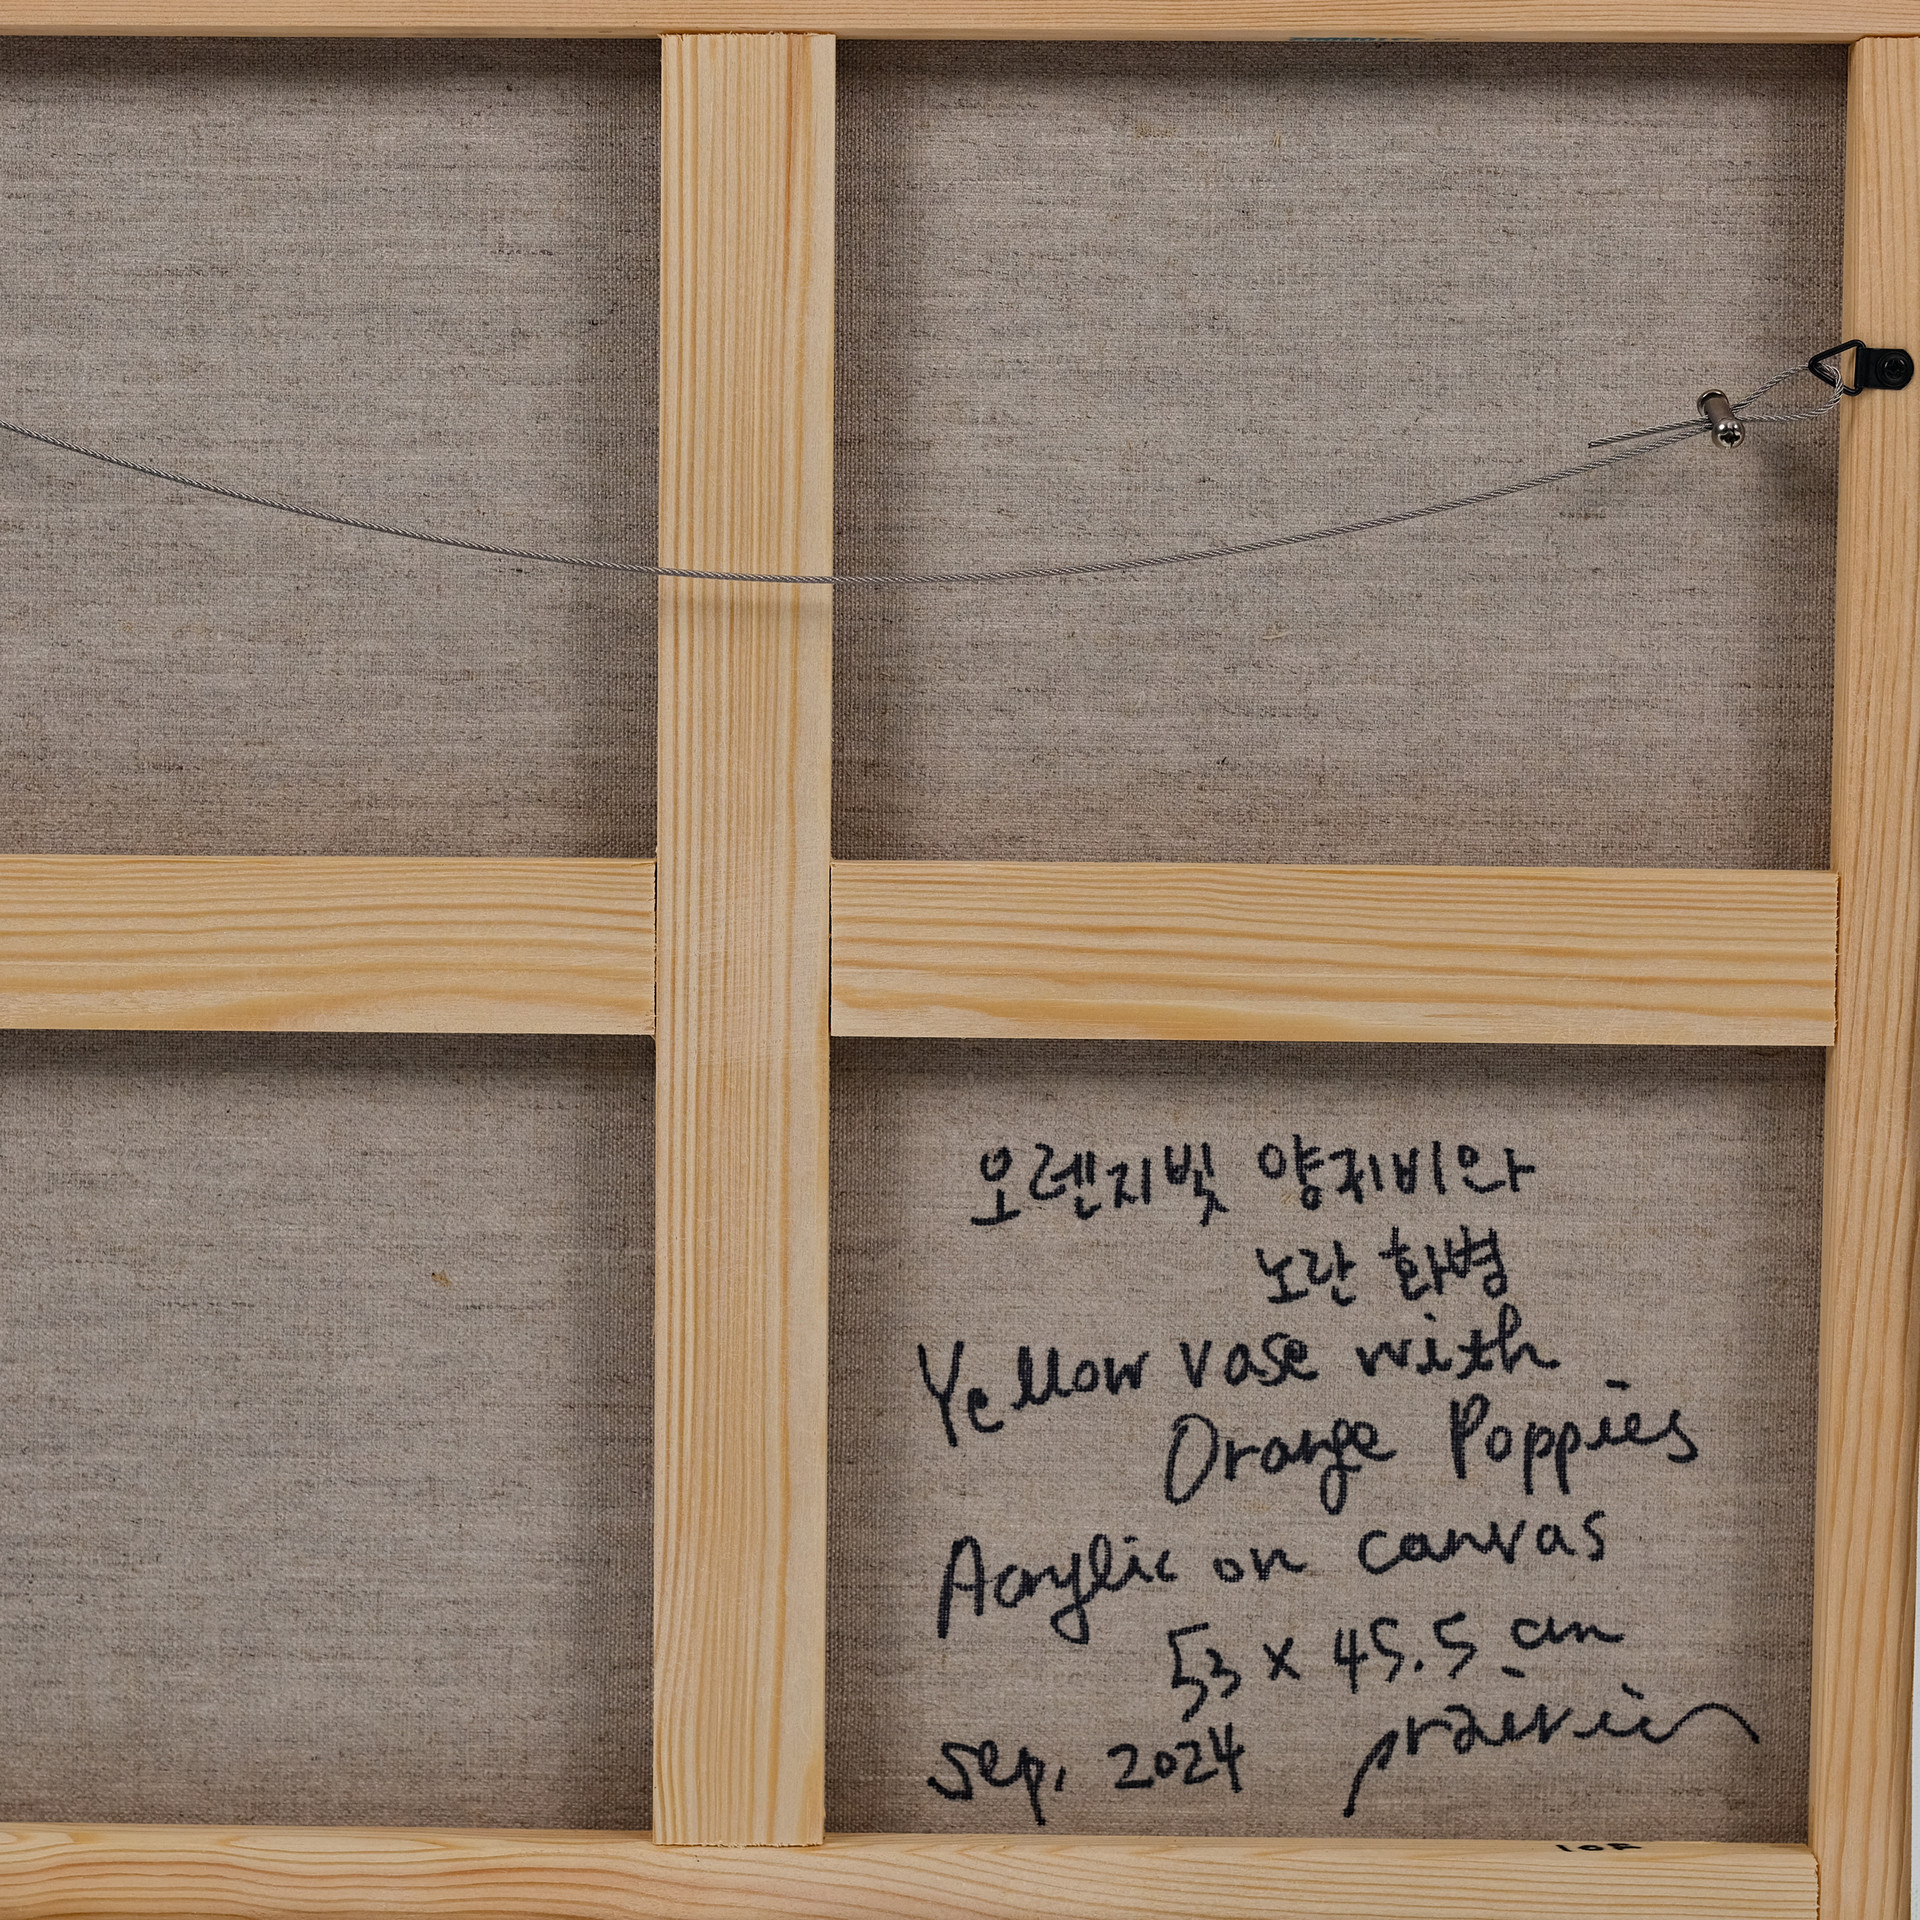 오렌지빛 양귀비와
노란 화병
Yellow vase with
Orange Poppies
Acrylic on canvas
53 x 45.5 cm
Sep, 2024
10F